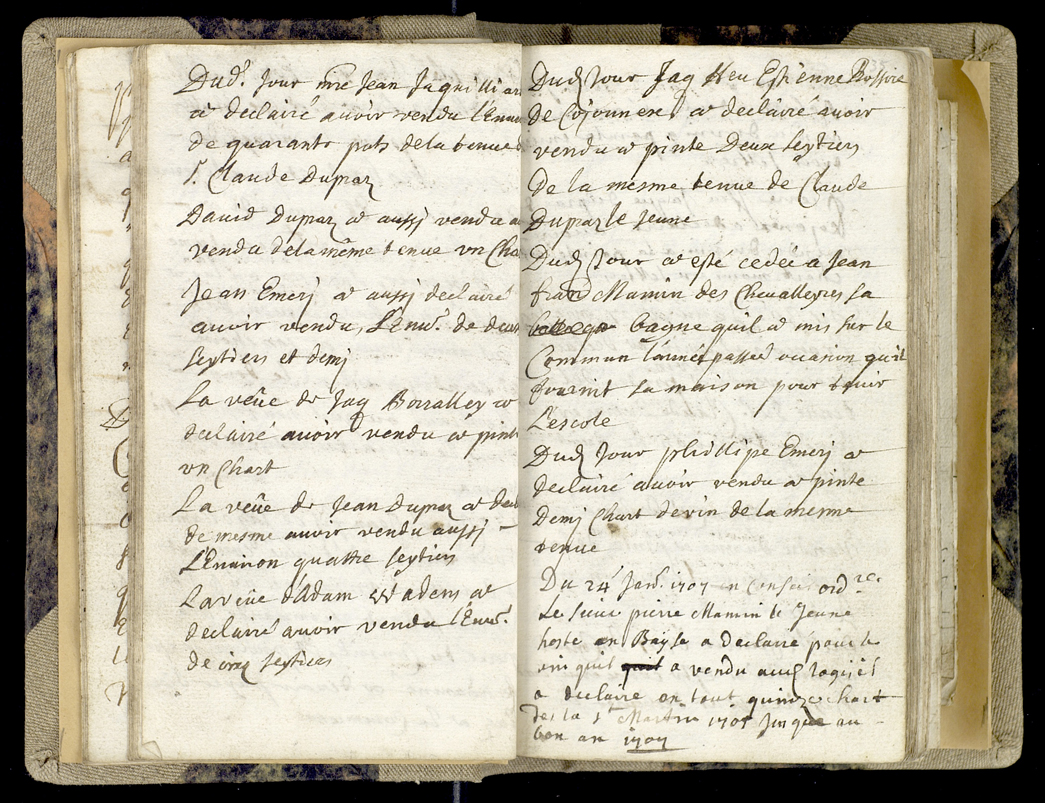 Dud.t Jour mre Jean Jaquilliar
a declairé auoir vendu l'Enuir
de quarante pots de la tenue d
Sr. Claude Dupraz
David Dupraz a aussj vendu a
vendu dela même tenue vn Cha
Jean Emerj a aussj declairé
auoir vendu, L'Enur. de deux
seytiers et demj
La veüe de Jaq Borralley a
declairé auoir vendu a pinte
vn Chart
La veüe de Jean Dupraz a decl
de mesme auoir vendu aussj –
L'Enuiron quattre seytiers
La veüe d'Adam Wadens a
declairé auoir vendu l'Enur.
de cinq seytiers
Dud Jour Jaq feu Estienne
de Cojonnex a declairé auoir
vendu a pinte Deux seytiers
De la mesme tenue de Claude
Dupraz le Jeune
Dud Jour a esté cedée a Jean
Mamin des Cheualleyres la
bagne quil a mis sur le
Commun l'année passée occasion qu'il
fournit sa maison pour tenir
L'escole
Dud Jour phillipe Emerj a
declairé auoir vendu a pinte
Demj Chart de vin de la mesme
tenue
Du 24e Janr. 1707 en Conseil ordre.
Le Sieur pierre Mamin le Jeune
hoste en a declaire pour le
vin quil a vendu aud logis
a declaire en tout quinze chart
des la St Martin 1705 Jusque au
bon an 1707